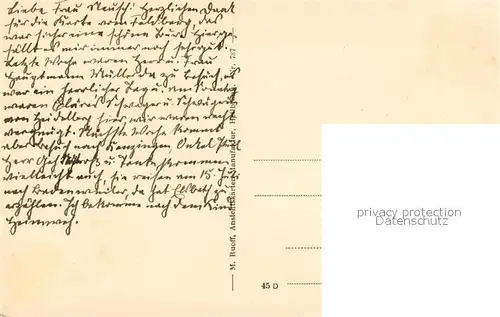 Liebe Frau Reusch! Herzlichen Dank
für die Karte vom Feldberg, das
war sehr eine schöne Tour. Hier ge-
fällt es mir immer noch sehr gut.
Letzte Woche waren Herr u. Frau
Hauptmann Müller da zu Besuch, es
war ein herrlicher Tag u. am Sonntag
waren Schwager u. Schwägerin
von Heidelberg hier wir waren noch
vergnügt. Nächste Woche kommt
aber Besuch nach Kenzingen Onkel
Herr u. Tante Hermann
vielleicht auch, sie reisen am 15. Juli
nach Badenweiler, da hat Elsbeth zu
erzählen. Ich bekomme nach dem Kind
Heimweh.
M. Ruoff, Ansichtskarten-Manufaktur, Nr. 737
45 D
privacy protection
Datenschutz